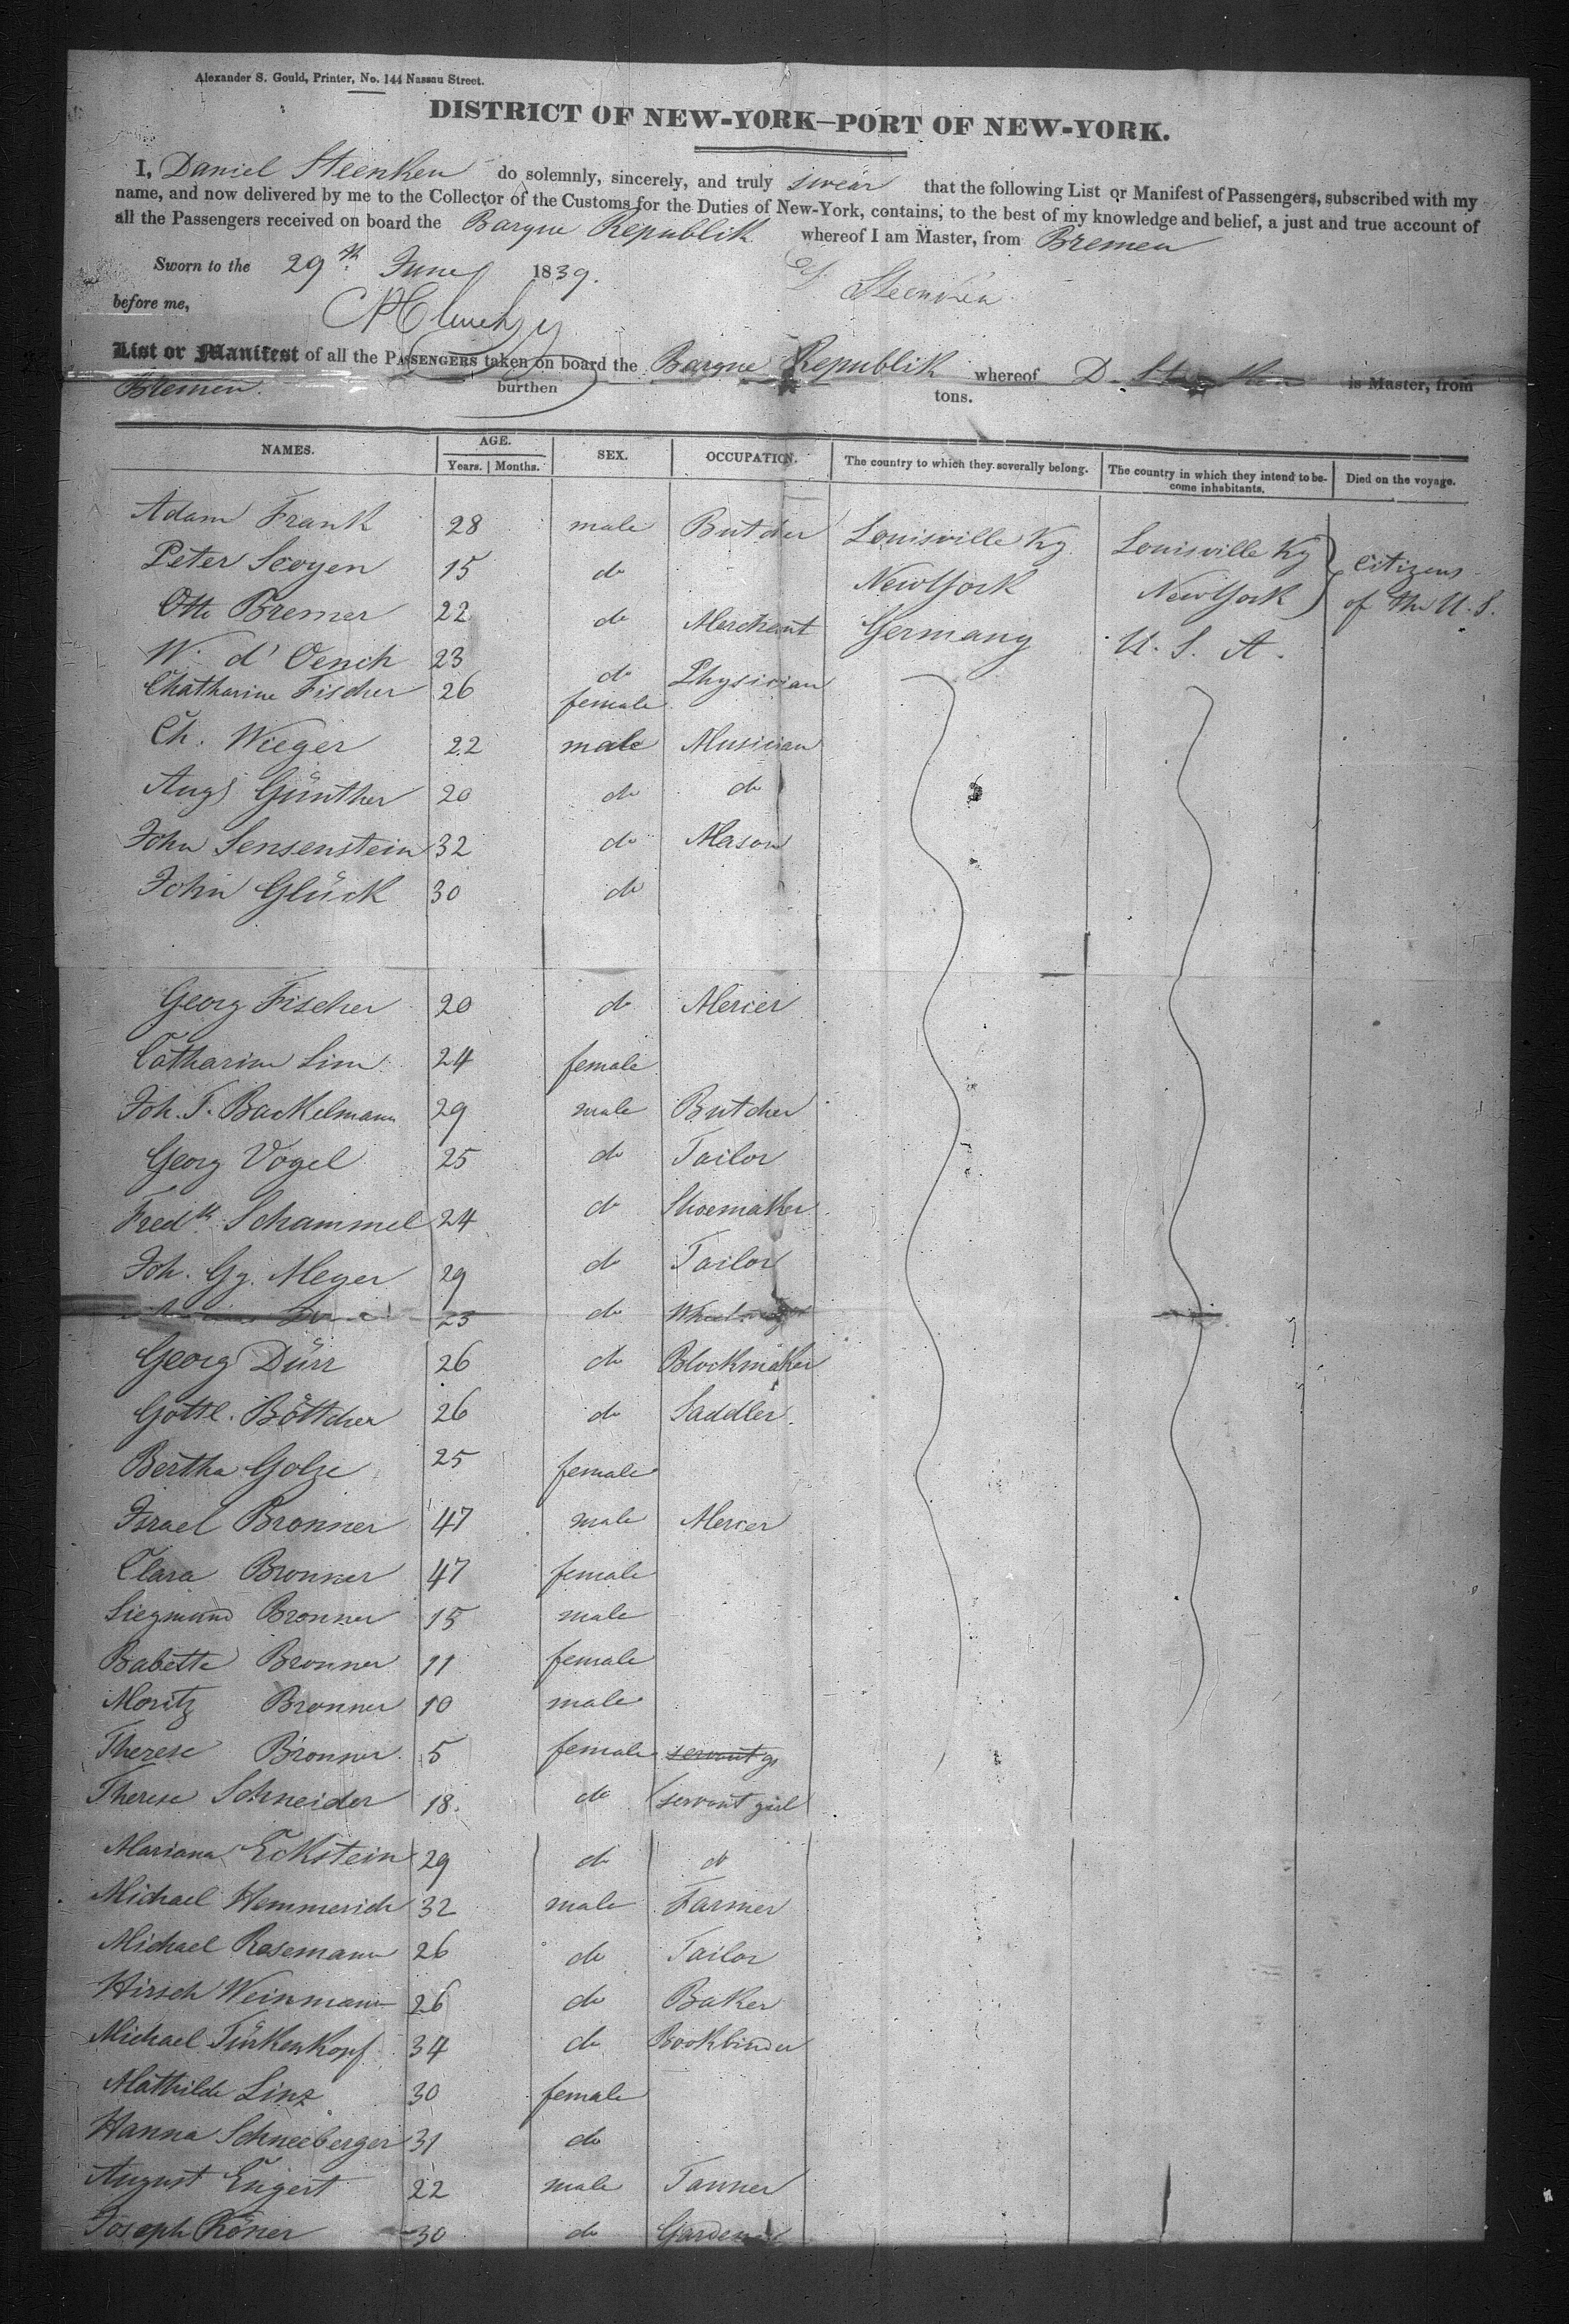 Alexander S. Gould, Printer, No. 144 Nassau Street.
DISTRICT OF NEW-YORK—PORT OF NEW-YORK.
I, Daniel Steenken do solemnly, sincerely, and truly swear that the following List or Manifest of Passengers, subscribed with my
name, and now delivered by me to the Collector of the Customs for the Duties of New-York, contains, to the best of my knowledge and belief, a just and true account of
all the Passengers received on board the Barque Republik whereof I am Master, from Bremen
Sworn to the 29th June 1839. D Steenken
before me,
List or Manifest of all the PASSENGERS taken on board the Barque Republik whereof D. Steenken is Master, from
Bremen. burthen tons.
NAMES. AGE. Years. Months. SEX. OCCUPATION. The country to which they severally belong. The country in which they intend to become inhabitants. Died on the voyage.
Adam Frank 28 male Butcher Louisville Ky. Louisville Ky Citizens
Peter Scoyen 15 do New York New York of the U. S.
Otto Bremer 22 do Merchant Germany U. S. A.
W. d'Oench 23 do Physician
Chatharine Fischer 26 female
Ch. Wieger 22 male Musician
Augs Günther 20 do do
John Sensenstein 32 do Mason
John Glück 30 do
Georg Fischer 20 do Mercer
Catharine Linn 24 female
Joh. F. Backelmann 29 male Butcher
Georg Vogel 25 do Tailor
Fredk Schammel 24 do Shoemaker
Joh. Gg. Meyer 29 do Tailor
23 do
Georg Dürr 26 do Blockmaker
Gottl. Böttcher 26 do Saddler
Bertha Golze 25 female
Israel Bronner 47 male Mercer
Clara Bronner 47 female
Siegmund Bronner 15 male
Babette Bronner 11 female
Moritz Bronner 10 male
Therese Bronner 5 female servant g
Therese Schneider 18. do servant girl
Mariana Eckstein 29 do do
Michael Hemmerich 32 male Farmer
Michael Rosemann 26 do Tailor
Hirsch Weinmann 26 do Baker
Michael Türkenkopf 34 do Bookbinder
Mathilde Linz 30 female
Hanna Schneeberger 31 do
August Engert 22 male Tanner
Joseph Röner 30 do Gardener